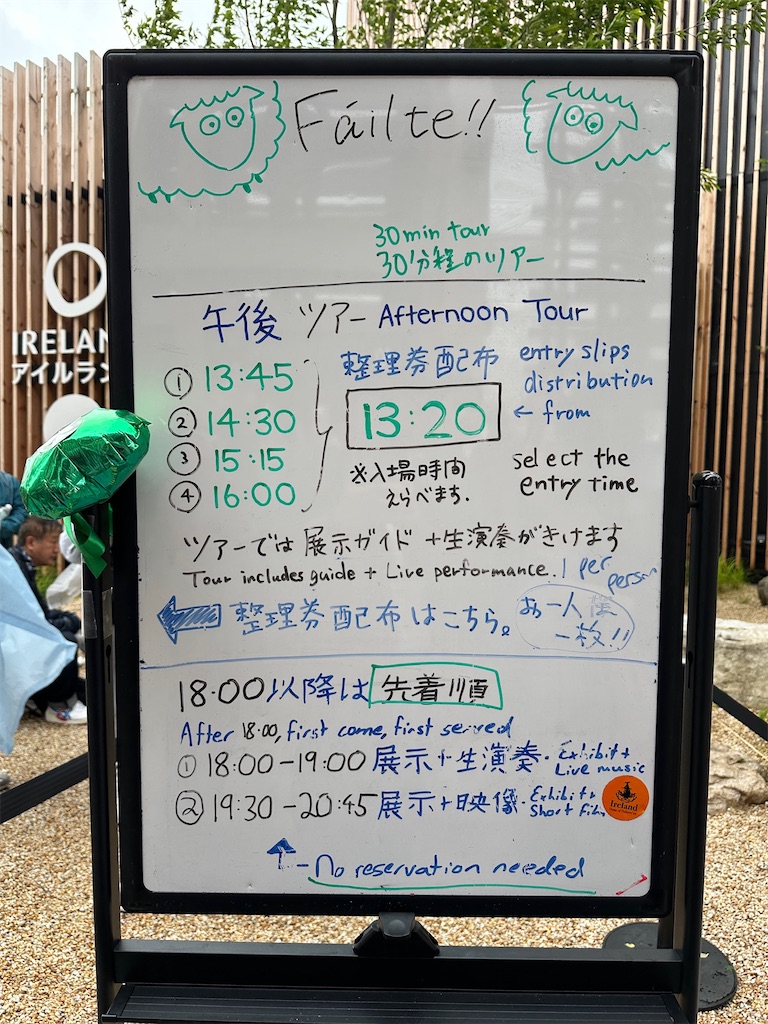 Fáilte!!
30min tour
30分程のツアー
IRELAN
アイルラン
午後 ツアー Afternoon Tour
① 13:45
② 14:30
③ 15:15
④ 16:00
整理券配布 entry slips
distribution
13:20 ← from
※入場時間
えらべます.
select the
entry time
ツアーでは展示ガイド+生演奏がきけます
Tour includes guide + Live performance.
1 per
person
← 整理券配布はこちら。
お一人様
一枚!!
18:00以降は 先着順
After 18:00, first come, first served
① 18:00-19:00 展示+生演奏・Exhibit+
Live music
② 19:30-20:45 展示+映像・Exhibit+
Short film
Ireland
↑-No reservation needed